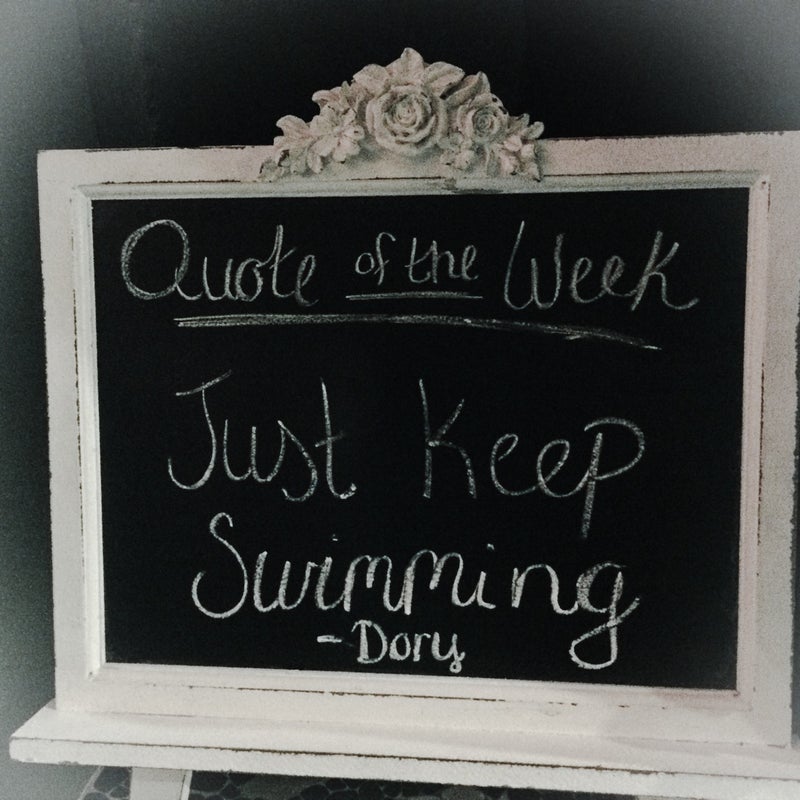 Quote of the Week
Just Keep
Swimming
- Dory